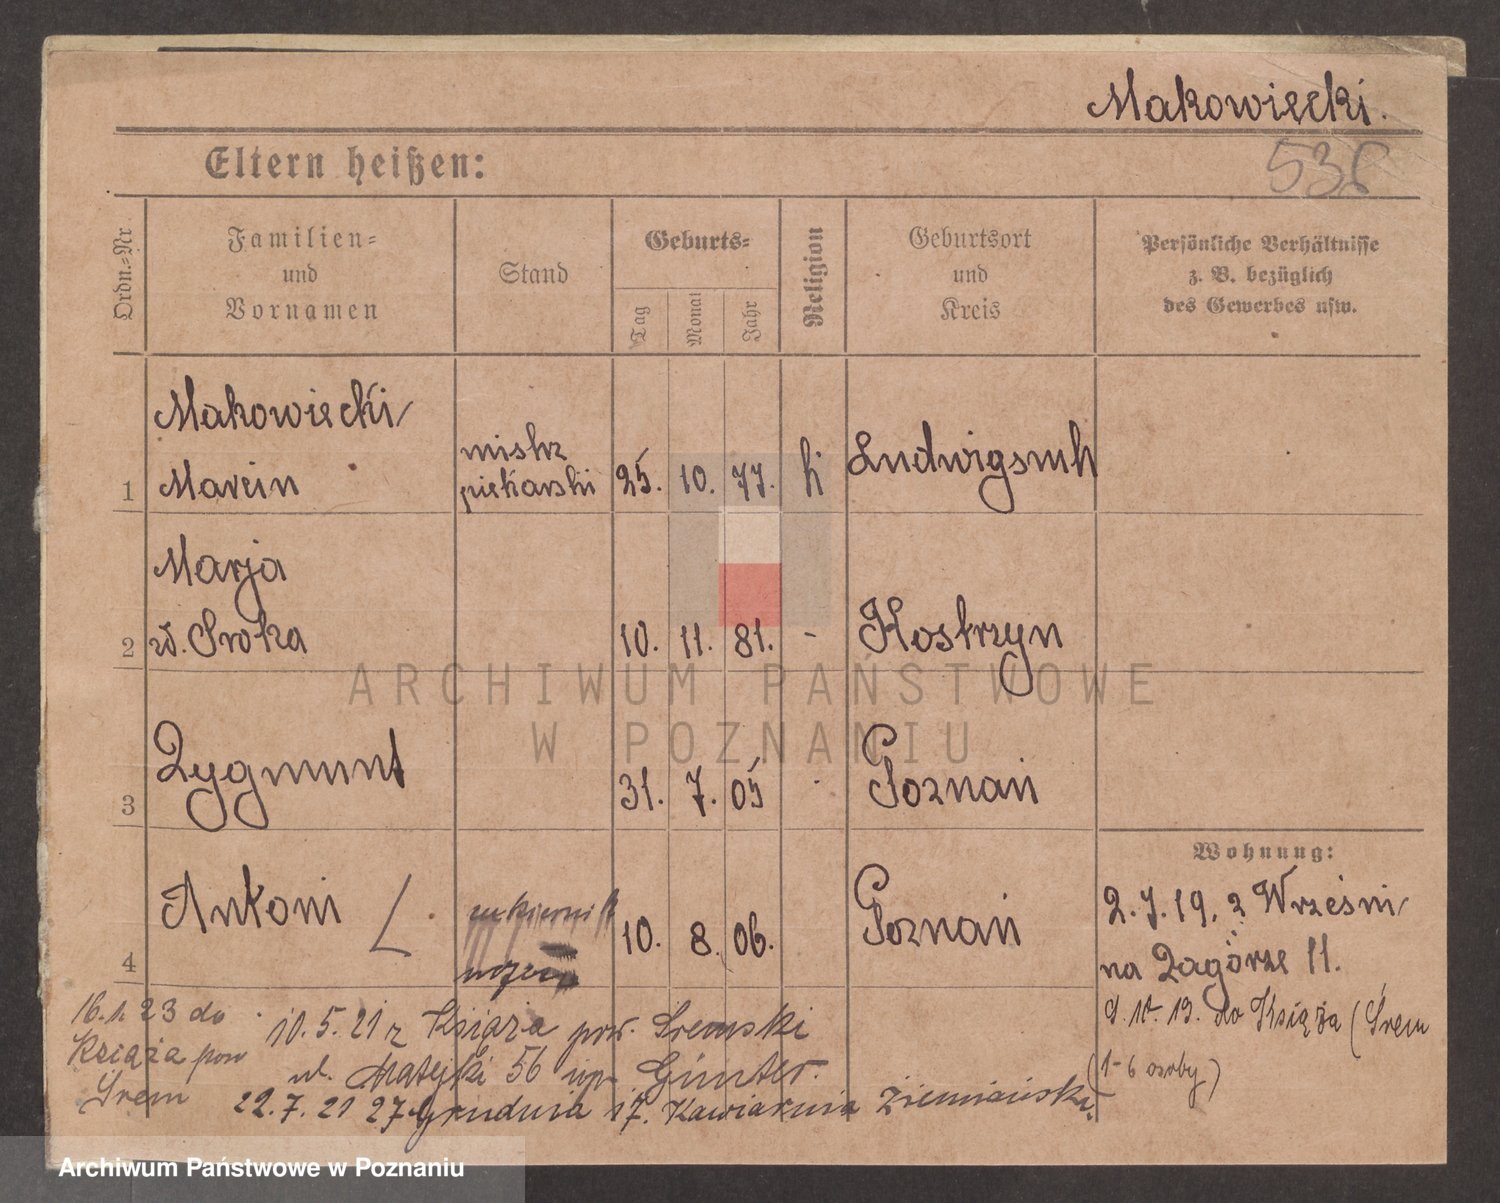 Makowiecki.
536
Eltern heißen:
Ordn.=Nr
Familien=
und
Vornamen
Stand
Geburts=
Tag
Monat
Jahr
Religion
Geburtsort
und
Kreis
Persönliche Verhältnisse
z. B. bezüglich
des Gewerbes usw.
Makowiecki
1 Marcin mistrz piekarski 25. 10. 77. k Ludwigsruh
Marja
2 ż. Sroka 10. 11. 81. - Kostrzyn
3 Zygmunt 31. 7. 05 Poznań
4 Antoni 10. 8. 06. Poznań
Wohnung:
2. 7. 19. z Wrześni
na Zagórze 11.
10. 19. do Książa (Śrem
(1-6 osoby)
16. 1. 23 do
Książa pow
Śrem
10. 5. 21 z Książa pow. Śremski
ul. Matejki 56 up. Günter.
22. 7. 21 27 Grudnia 17. Kawiarnia Ziemiańska
ARCHIWUM PAŃSTWOWE
W POZNANIU
Archiwum Państwowe w Poznaniu